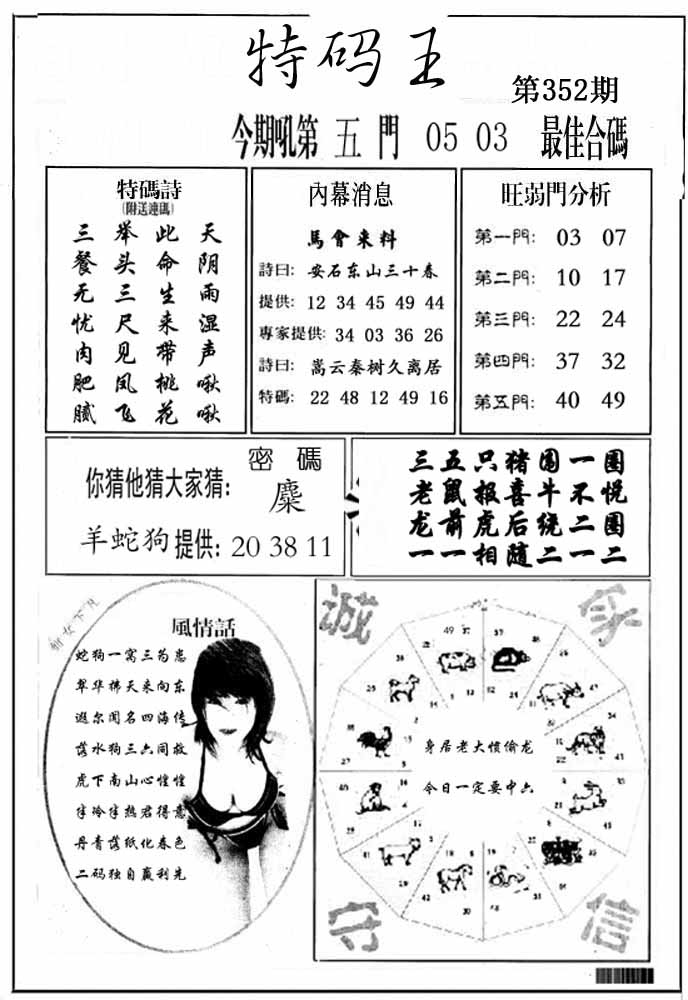 特码王
第352期
今期吼第 五 門 05 03 最佳合碼
特碼詩
(附送連碼)
三 举 此 天
餐 头 命 阴
无 三 生 雨
忧 尺 来 湿
肉 见 带 声
肥 凤 桃 啾
腻 飞 花 啾
內幕消息
馬會来料
詩曰: 安石东山三十春
提供: 12 34 45 49 44
專家提供: 34 03 36 26
詩曰: 嵩云秦树久离居
特碼: 22 48 12 49 16
旺弱門分析
第一門: 03 07
第二門: 10 17
第三門: 22 24
第四門: 37 32
第五門: 40 49
密 碼
你猜他猜大家猜: 麇
羊蛇狗 提供: 20 38 11
三五只猪围一圈
老鼠报喜牛不悦
龙前虎后绕二圈
一一相随二一二
風情話
蛇狗一窝三为患
翠华拂天来向东
遐尔闻名四海传
落水狗三六同救
虎下南山心惶惶
半冷半热君得意
丹青落纸化春色
二码独自赢利先
诚
守
信
身居老大惯偷龙
今日一定要中六